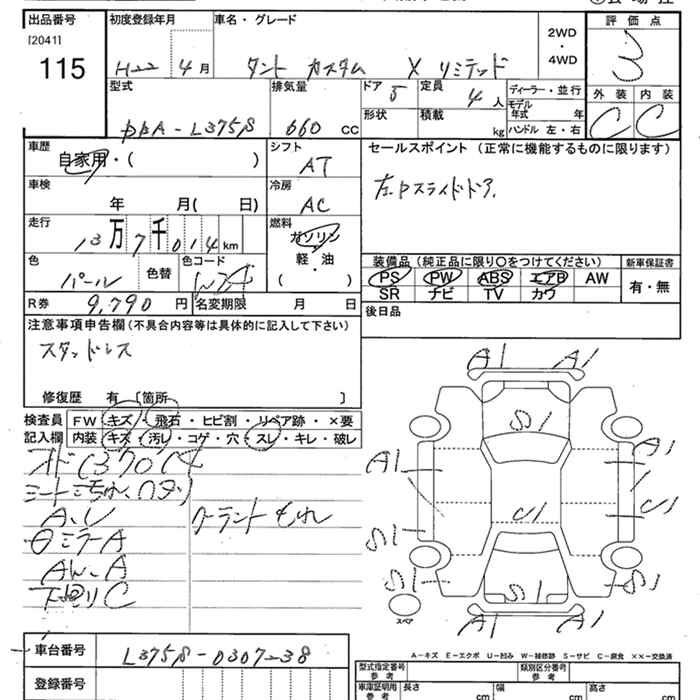 出品番号 初度登録年月 車名・グレード 評価点
[2041]
115
H22 4月 タント カスタム X リミテッド 2WD・4WD 3
型式 排気量 ドア 5 定員 4人 ディーラー・並行 外装 内装
モデル年式 年
DBA-L375S 660 CC 形状 積載 kg ハンドル 左・右 C C
車歴 シフト セールスポイント(正常に機能するものに限ります)
自家用・( ) AT
左Pスライドドア.
車検 冷房
年 月( 日) AC
走行 燃料
13万7千014km ガソリン
軽・油
( )
装備品(純正品に限り○をつけてください) 新車保証書
色 色替 色コード
パール W24
PS PW ABS エアB AW 有・無
SR ナビ TV カワ
R券 9,790円 名変期限 月 日 後日品
注意事項申告欄(不具合内容等は具体的に記入して下さい)
スタッドレス
修復歴 有 [箇所 ]
検査員 FW キズ・飛石・ヒビ割・リペア跡・×要
記入欄 内装 キズ・汚レ・コゲ・穴・スレ・キレ・破レ
A、U クーラントもれ
ミラーA
AW、A
下廻りC
A1 A1
S1
A1 A1
U1 U1
S1
S1 S1 S1
A1 A1
スペア
A-キズ E-エクボ U-凹み W-補修跡 S-サビ C-腐食 ××-交換済
車台番号 L375S-0307238
型式指定番号 参考 類別区分番号 参考
登録番号 車庫証明用 参考 長さ cm 幅 cm 高さ cm